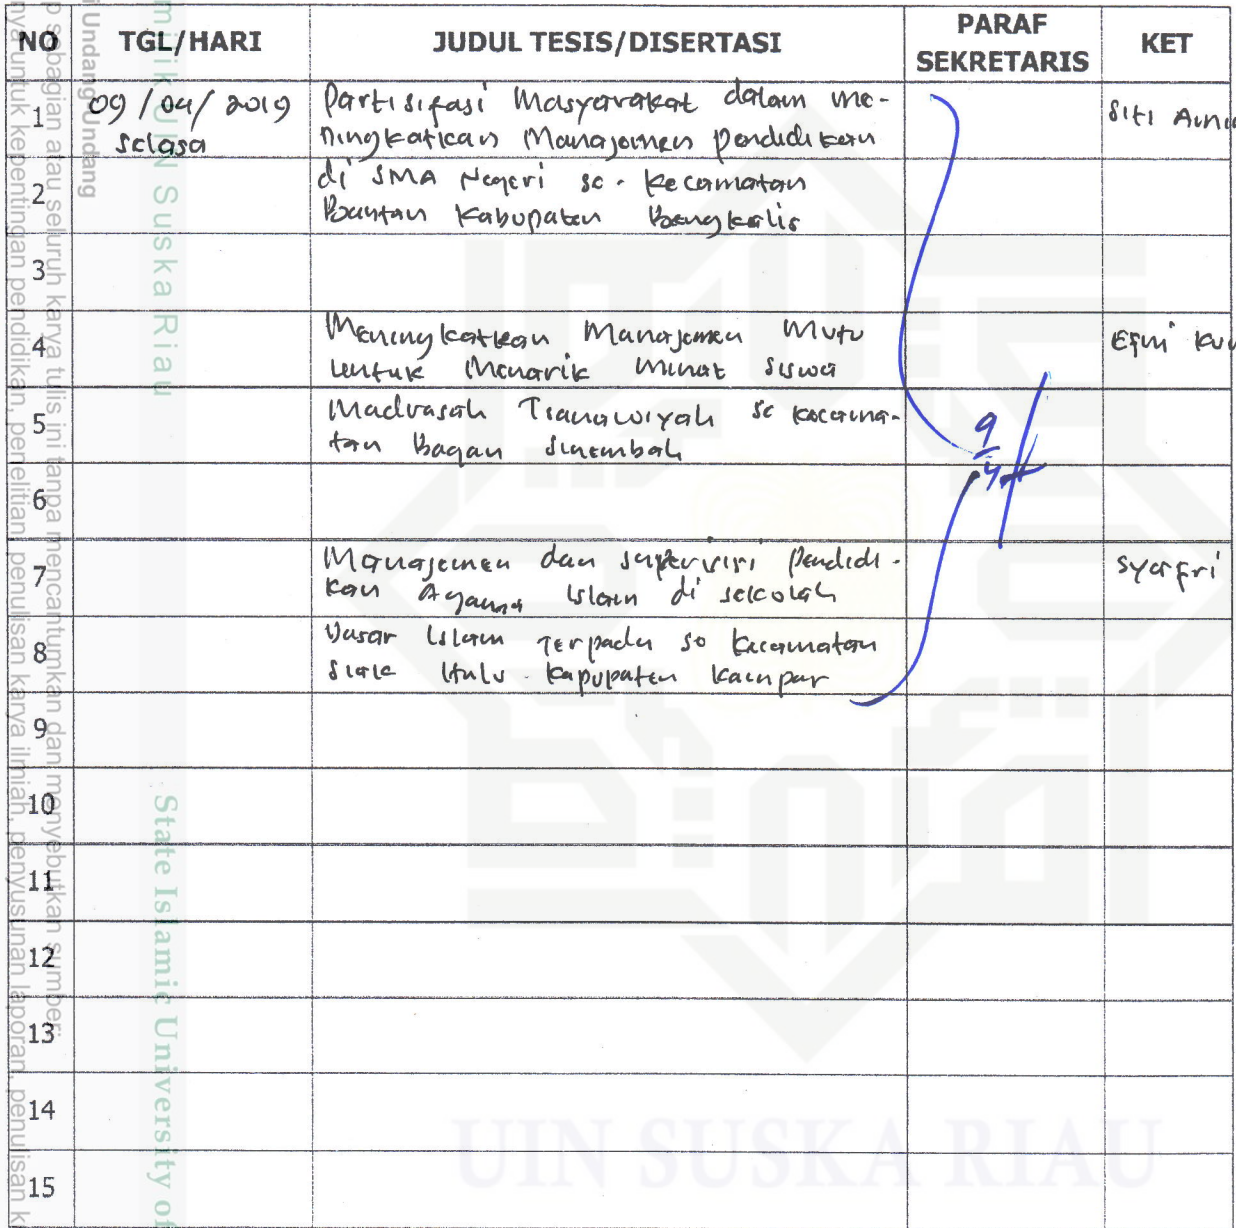 NO TGL/HARI JUDUL TESIS/DISERTASI PARAF SEKRETARIS KET
1 09/04/2019 Partisipasi Masyarakat dalam me- Siti
selasa ningkatkan Manajemen pendidikan
2 di SMA Negeri se-Kecamatan
Bantan Kabupaten Bengkalis
3
4 Meningkatkan Manajemen Mutu Efni
untuk Menarik Minat Siswa
5 Madrasah Tsanawiyah se kecama-
tan Bagan Sinembah
9/4
6
7 Manajemen dan supervisi pendidi- Syafri
kan Agama Islam di sekolah
8 Dasar Islam Terpadu se Kecamatan
Siak Hulu Kapupaten Kampar
9
10
11
12
13
14
15
UIN SUSKA RIAU
milik UIN Suska Riau
State Islamic University of
i Undang-Undang
p sebagian atau seluruh karya tulis ini tanpa mencantumkan dan menyebutkan sumber:
nya untuk kepentingan pendidikan, penelitian, penulisan karya ilmiah, penyusunan laporan, penulisan k